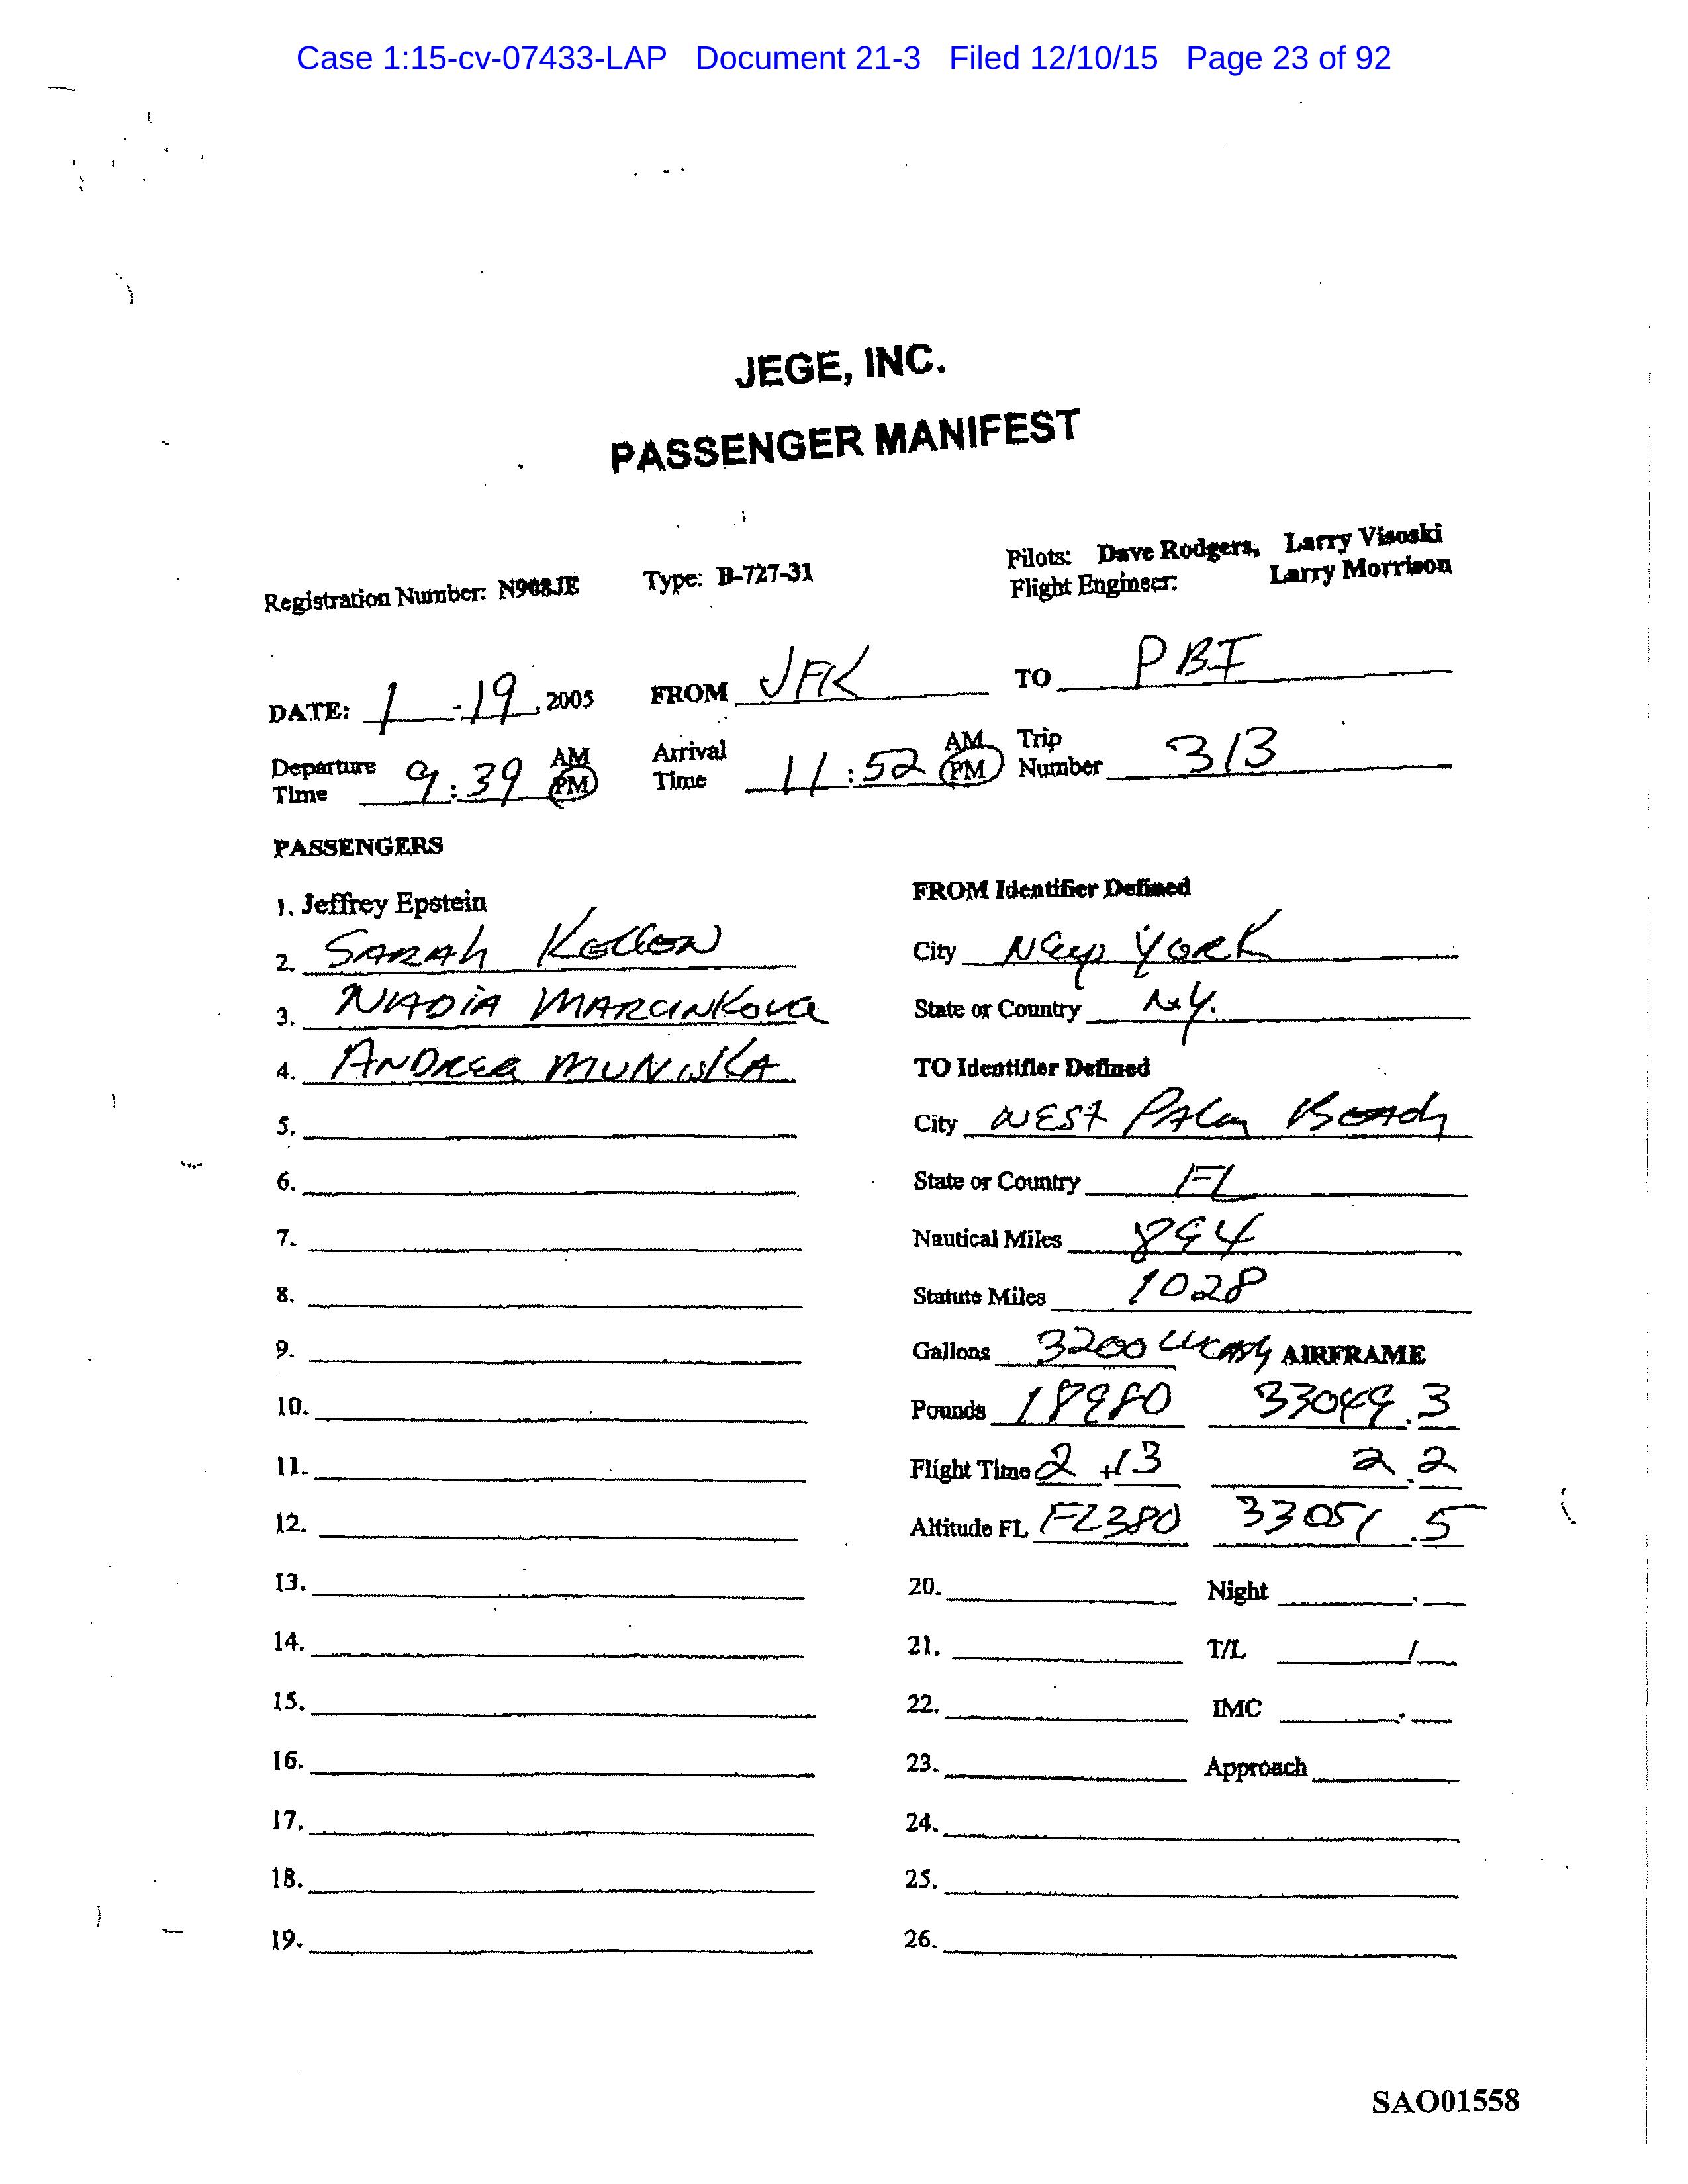 Case 1:15-cv-07433-LAP Document 21-3 Filed 12/10/15 Page 23 of 92
JEGE, INC.
PASSENGER MANIFEST
Registration Number: N908JE Type: B-727-31 Pilots: Dave Rodgers, Larry Visoski
Flight Engineer: Larry Morrison
DATE: 1-19, 2005 FROM JFK TO PBI
Departure Time 9:39 AM PM Arrival Time 11:52 AM PM Trip Number 313
PASSENGERS
1. Jeffrey Epstein
2. SARAH Kellen
3. NADIA MARCINKOVA
4. ANDREA
5.
6.
7.
8.
9.
10.
11.
12.
13.
14.
15.
16.
17.
18.
19.
FROM Identifier Defined
City New YORK
State or Country N.Y.
TO Identifier Defined
City WEST PALM Beach
State or Country FL
Nautical Miles 894
Statute Miles 1028
Gallons 3200 AIRFRAME
Pounds 18980 33049.3
Flight Time 2+13 2.2
Altitude FL FL380 33051.5
20. Night .
21. T/L /
22. IMC .
23. Approach
24.
25.
26.
SAO01558